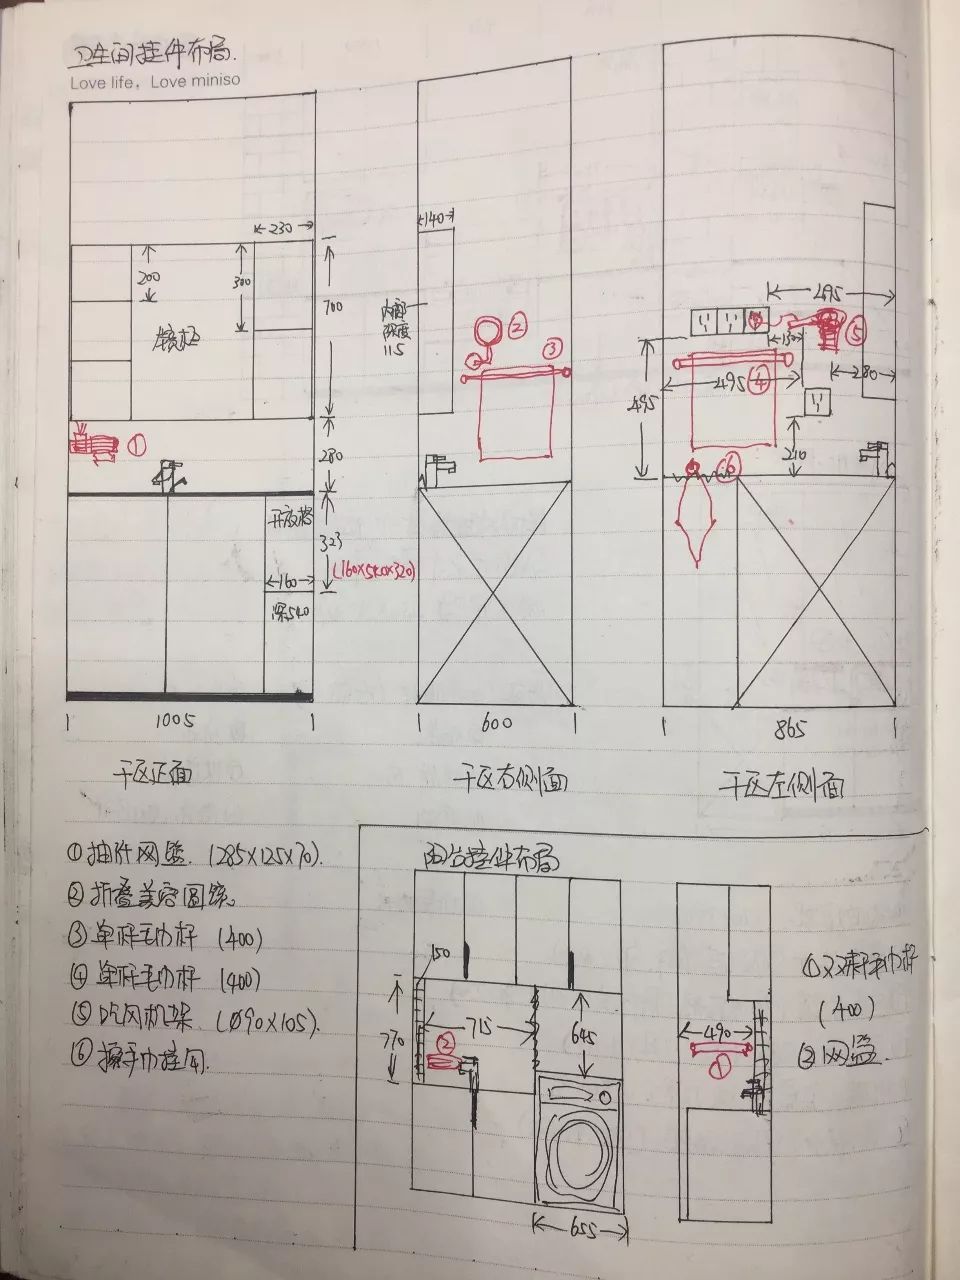 卫生间挂件布局.
Love life, Love miniso
230
140
200
300
700
镜柜
内部
深度
115
②
③
295
⑤
130
495
④
280
495
210
①
280
⑥
开放格
323
(160×540×320)
160
深540
1005
600
865
干区正面
干区右侧面
干区左侧面
①抽屉网篮. (285×125×70).
②折叠美容圆镜.
③单杆毛巾杆 (400)
④单杆毛巾杆 (400)
⑤吹风机架. (Ø90×105).
⑥擦手巾挂勾.
阳台挂件布局
150
770
715
②
645
655
490
①
①双杆毛巾杆
(400)
②网篮.